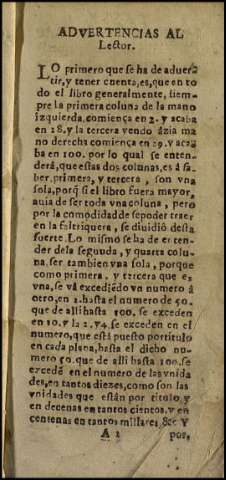 ADVERTENCIAS AL
Lector.
LO primero que se ha de adver
tir, y tener cuenta, es, que en to
do el libro generalmente, siem-
pre la primera coluna de la mano
izquierda, comiença en 2. y acaba
en 28. y la tercera vendo àzia ma
no derecha comiença en 29. y aca
ba en 100. por lo qual se enten-
derà, que estas dos colunas, es à sa
ber, primera, y tercera, son vna
sola, porq̃ si el libro fuera mayor,
auia de ser toda vna coluna, pero
por la comodidad de sepoder traer
en la faltriquera, se diuidiò desta
suerte. Lo mismo se ha de enten-
der de la segunda, y quarta colu-
na, ser tambien vna sola, porque
como primera, y tercera que es
vna, se và excediẽdo vn numero à
otro, en 2. hasta el numero de 50.
que de alli hasta 100. se exceden
en 10. y la 2. y 4. se exceden en el
numero, que està puesto por titulo
en cada plana, hasta el dicho nu-
mero 50. que de alli hasta 100. se
excedẽ en el numero de las vnida
des, en tantos diezes, como son las
vnidades que estàn por titulo, y
en decenas en tantos cientos, y en
centenas en tantos millares, &c. Y
A 2 por,